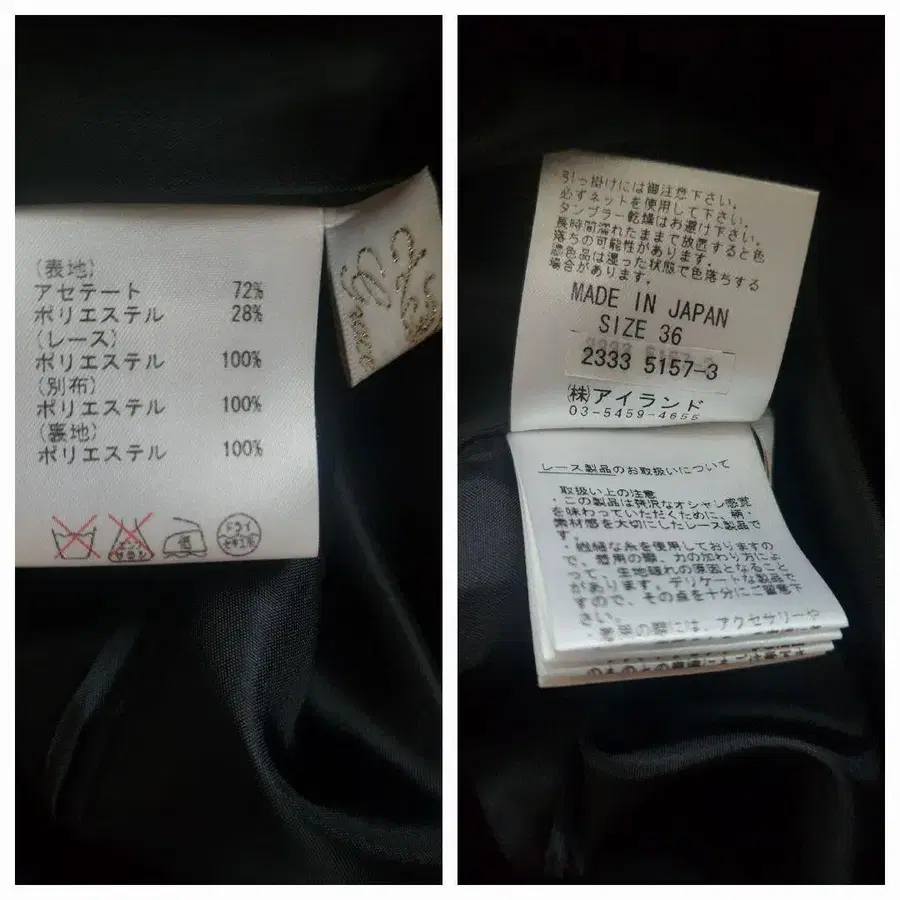 (表地)
アセテート 72%
ポリエステル 28%
(レース)
ポリエステル 100%
(別布)
ポリエステル 100%
(裏地)
ポリエステル 100%
低
ドライ
セキユ系
引っ掛けには御注意下さい。
必ずネットを使用して下さい。
タンブラー乾燥はお避け下さい。
長時間濡れたままで放置すると色
落ちの可能性があります。
濃色品は湿った状態で色落ちする
場合があります。
MADE IN JAPAN
SIZE 36
2333 5157-3
㈱アイランド
03-5459-4655
レース製品のお取扱いについて
取扱い上の注意
・この製品は贅沢なオシャレ感覚
を味わっていただくために、柄・
素材感を大切にしたレース製品で
す。
・繊細な糸を使用しておりますの
で、着用の際、力の加わり方によ
って、生地破れの原因となること
があります。デリケートな製品で
すので、その点を十分にご留意下
さい。
・着用の際には、アクセサリーや